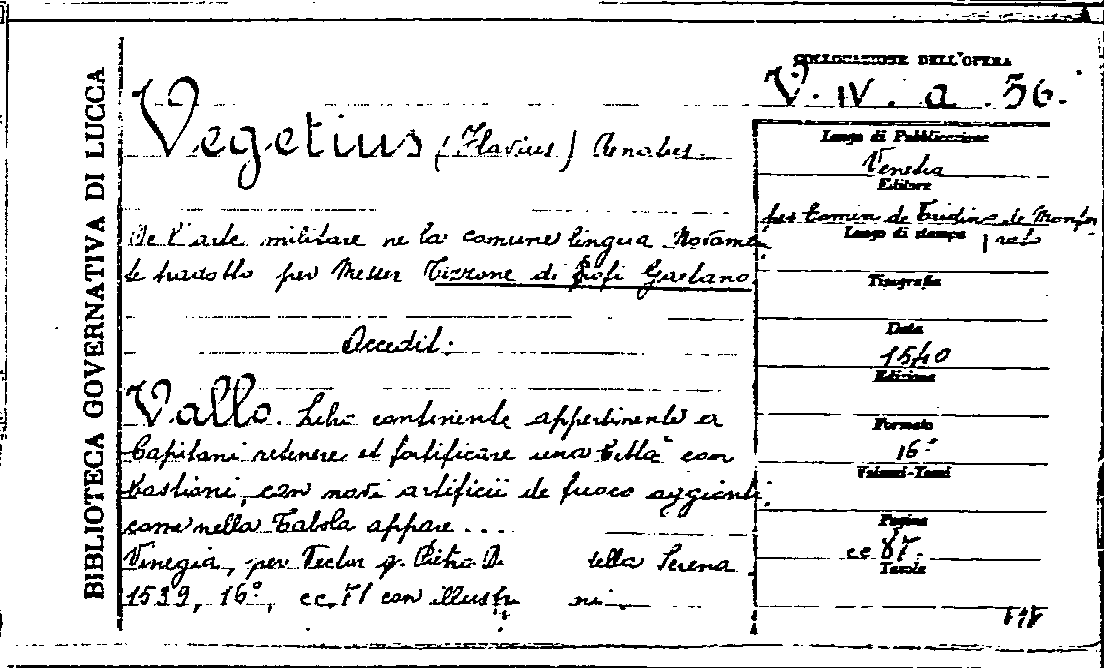 BIBLIOTECA GOVERNATIVA DI LUCCA
COLLOCAZIONE DELL'OPERA
V. IV. a. 56.
Vegetius (Flavius) Renatus.
De l'arte militare ne la comune lingua Novamen
te tradotto per Messer Tizzone di Pofi Gaetano.
Accedit:
Vallo. Libro continente appertinente er
Capitani retenere et fortificare una Città con
bastioni, con novi artificii de fuoco aggionti,
come nella Tabola appare...
Vinegia, per Pietro D. della Serena
1539, 16°, cc. con
Luogo di Pubblicazione
Venetia
Editore
per Comin de Tridino de Monfer
Luogo di stampa
rato
Tipografia
Data
1540
Edizione
Formato
16°
Volumi-Tomi
Pagine
cc 87.
Tavole